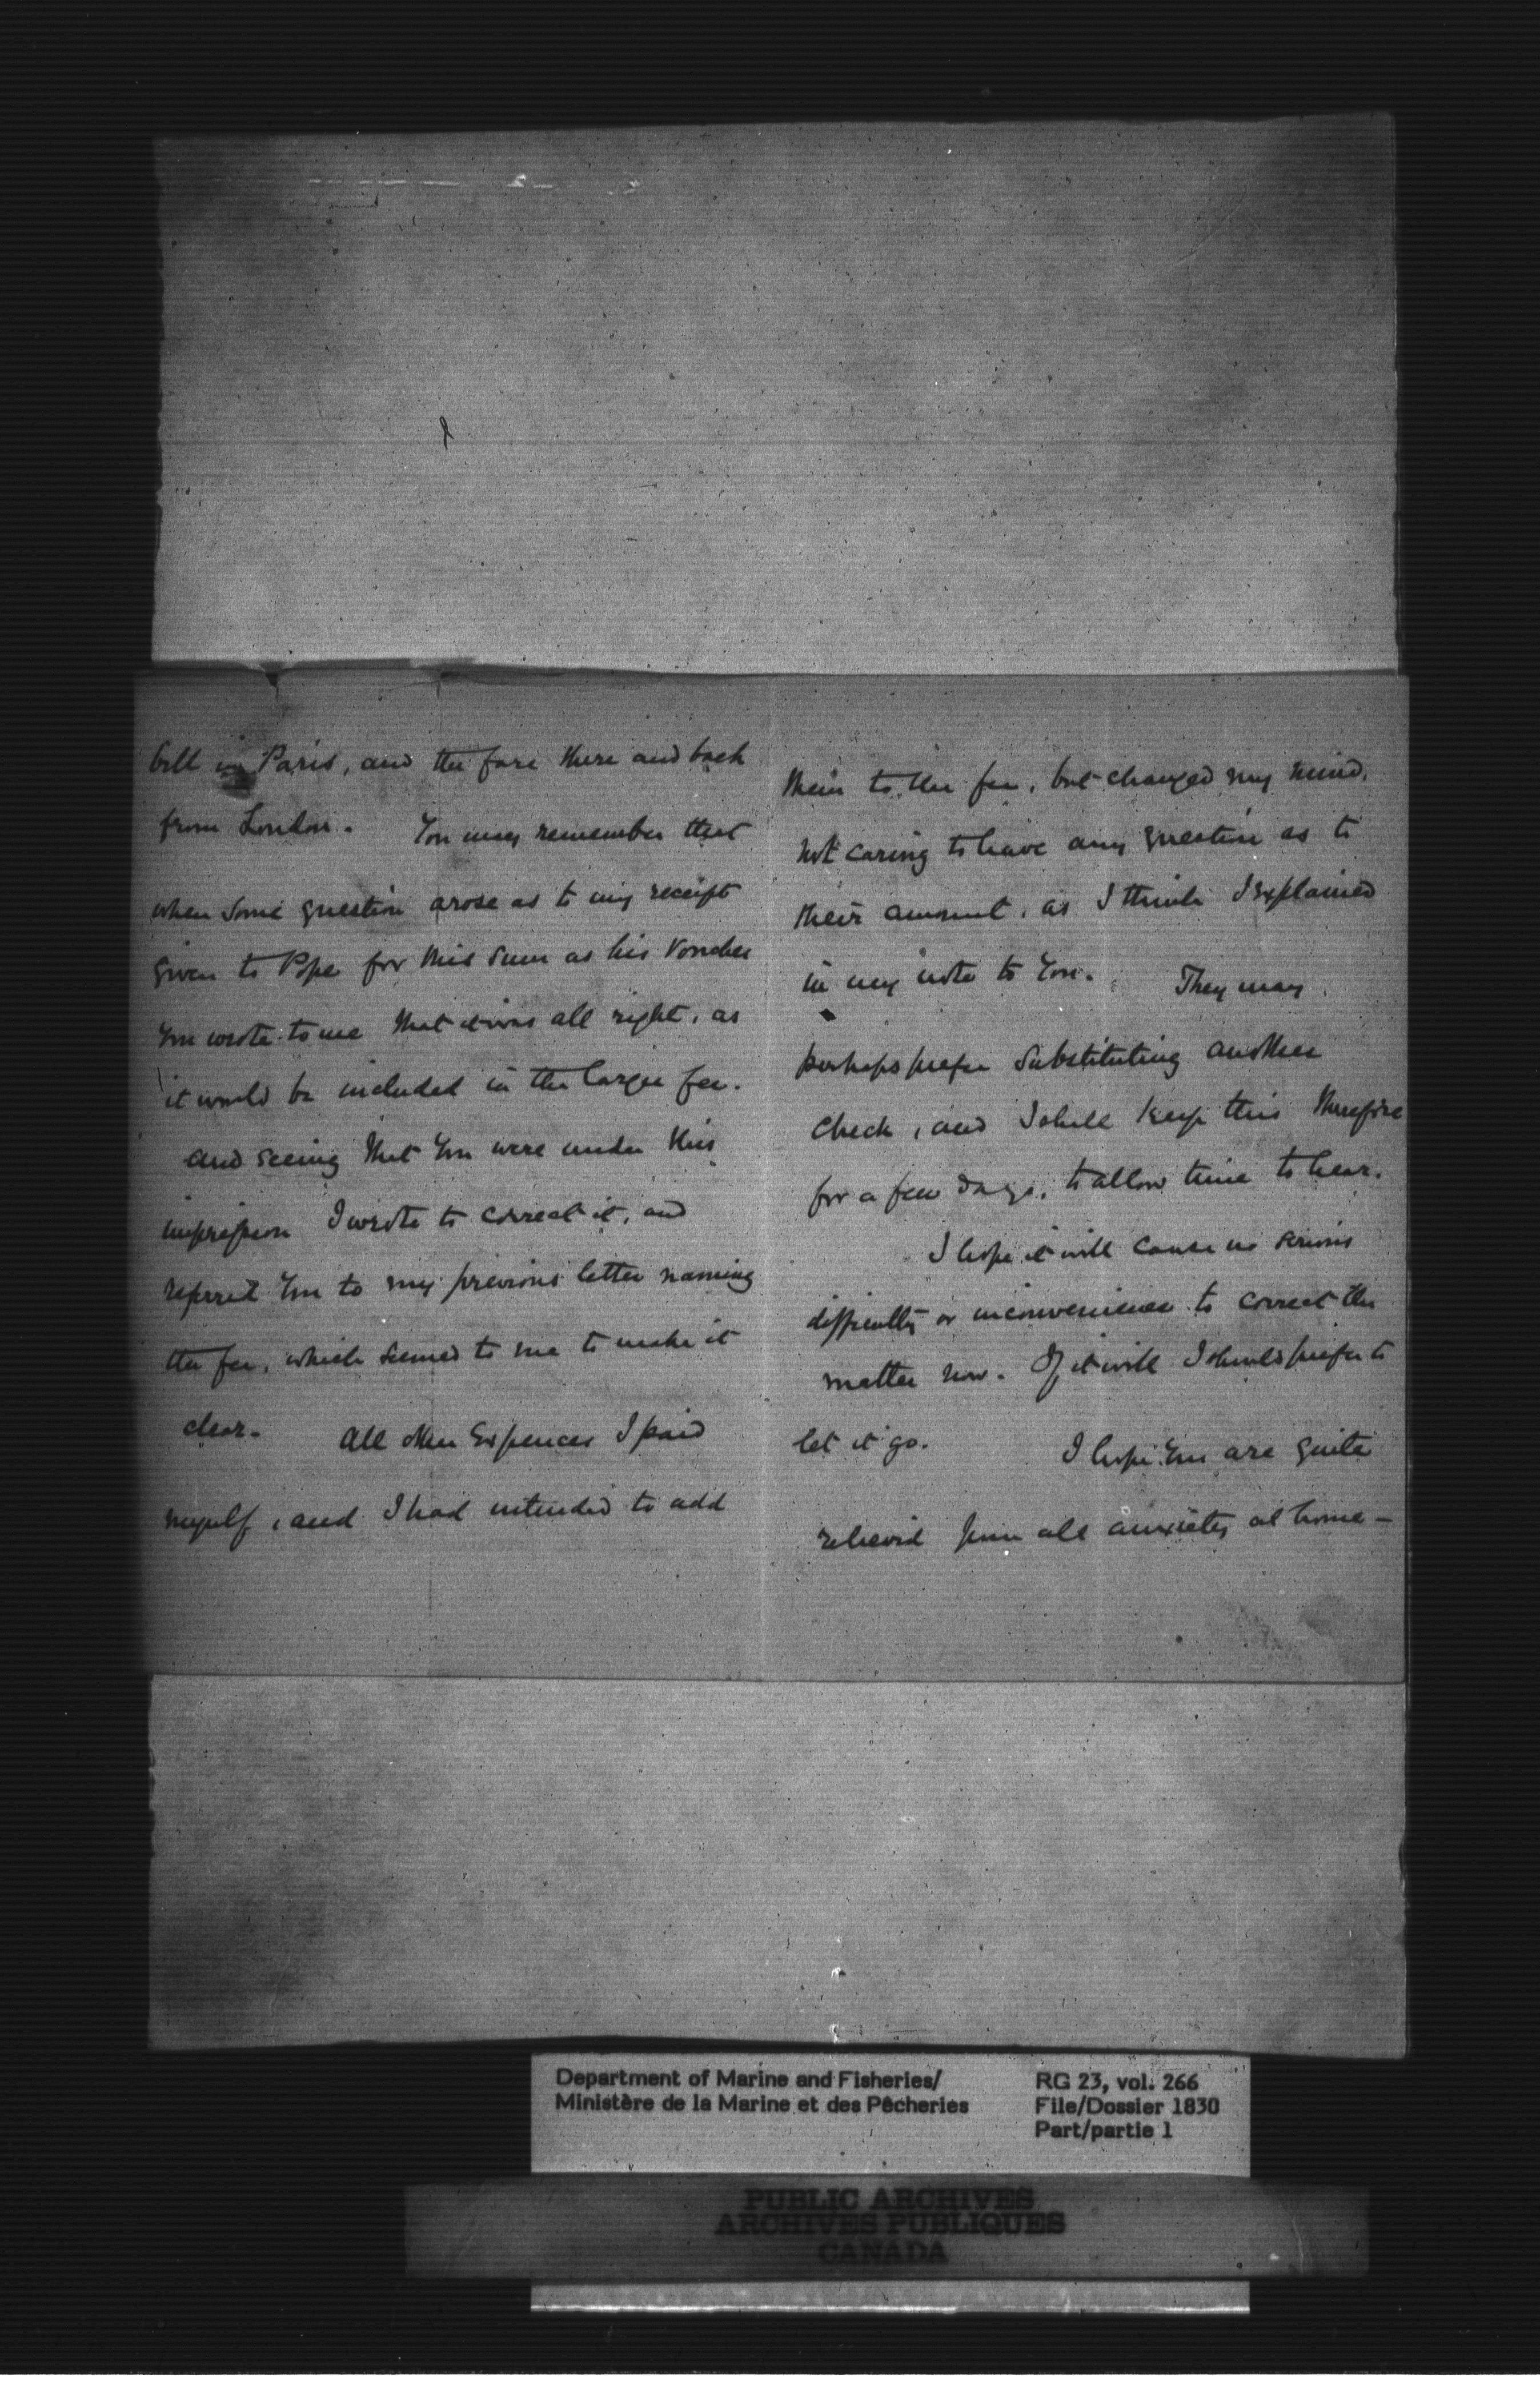 bill in Paris, and the fare there and back
from London. You may remember that
when some question arose as to my receipt
given to Pope for this sum as his voucher
you wrote to me that it was all right, as
it would be included in the larger fee.
and seeing that you were under this
impression I wrote to correct it, and
referred you to my previous letter naming
the fee, which seemed to me to make it
clear. All other Expences I paid
myself, and I had intended to add
them to the fee, but changed my mind,
not caring to have any question as to
their amount, as I think I explained
in my note to you. They may
perhaps prefer substituting another
check, and I shall keep this therefore
for a few days, to allow time to hear.
I hope it will cause no serious
difficulty or inconvenience to correct the
matter now. If it will I should prefer to
let it go. I hope you are quite
relieved from all anxiety at home -
Department of Marine and Fisheries/
Ministère de la Marine et des Pêcheries
RG 23, vol. 266
File/Dossier 1830
Part/partie 1
PUBLIC ARCHIVES
ARCHIVES PUBLIQUES
CANADA